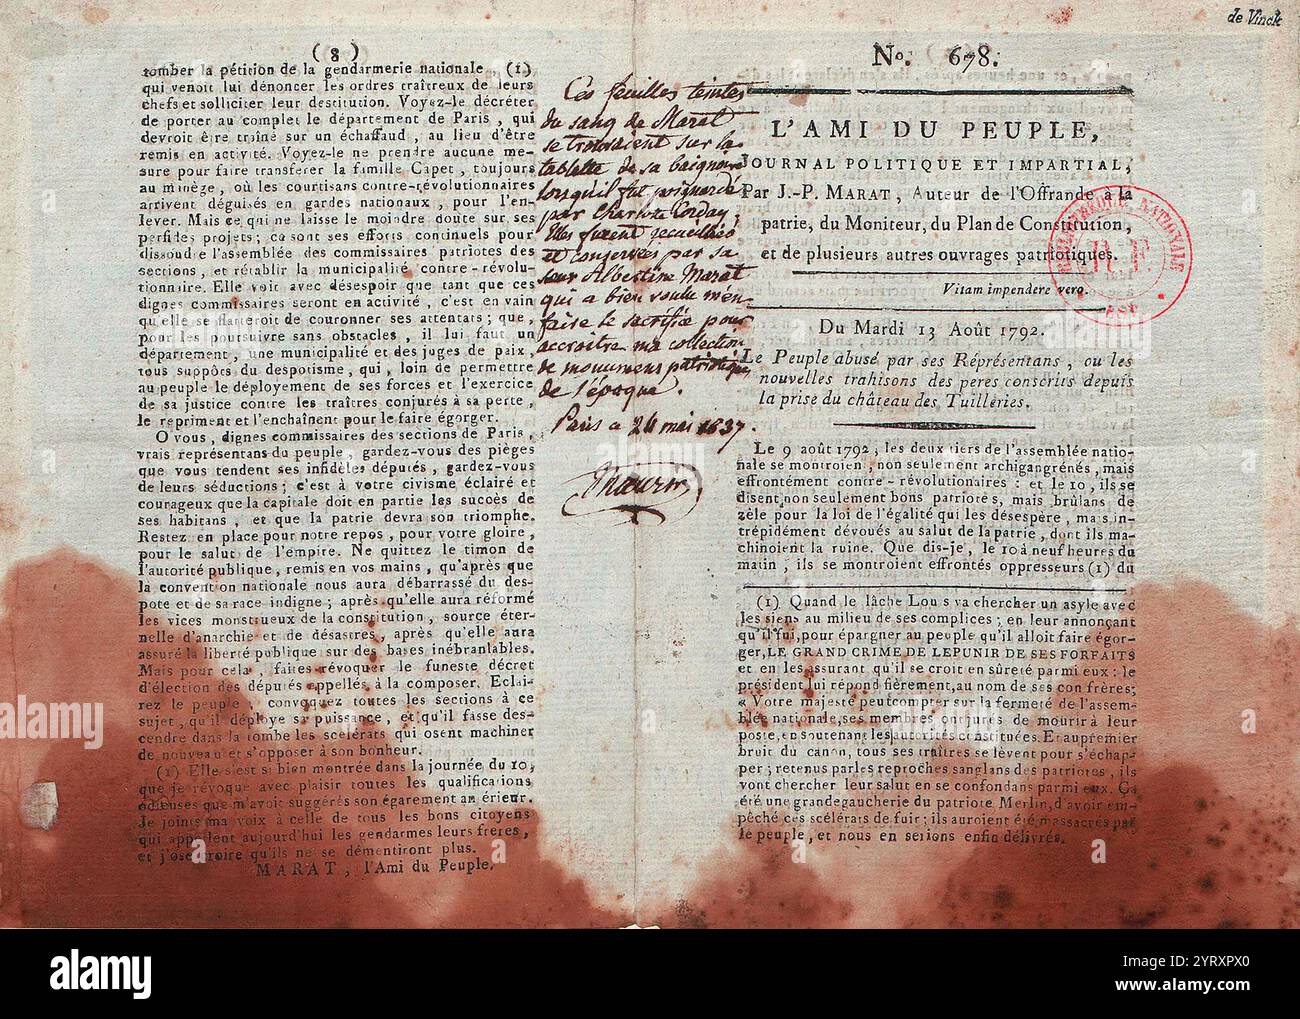 de Vinck
(8)
tomber la pétition de la gendarmerie nationale, (1)
qui venoit lui dénoncer les ordres traîtreux de leurs
chefs et solliciter leur destitution. Voyez-le décréter
de porter au complet le département de Paris, qui
devroit être traîné sur un échaffaud, au lieu d'être
remis en activité. Voyez-le ne prendre aucune me-
sure pour faire transférer la famille Capet, toujours
au minège, où les courtisans contre-révolutionnaires
arrivent déguisés en gardes nationaux, pour l'en-
lever. Mais ce qui ne laisse le moindre doute sur ses
perfides projets; ca sont ses efforts continuels pour
dissoudre l'assemblée des commissaires patriotes des
sections, et rétablir la municipalité contre-révolu-
tionnaire. Elle voit avec désespoir que tant que ces
dignes commissaires seront en activité, c'est en vain
qu'elle se flatteroit de couronner ses attentats; que,
pour les poursuivre sans obstacles, il lui faut un
département, une municipalité et des juges de paix,
tous suppôts du despotisme, qui, loin de permettre
au peuple le déployement de ses forces et l'exercice
de sa justice contre les traîtres conjurés à sa perte,
le repriment et l'enchaînent pour le faire égorger.
O vous, dignes commissaires des sections de Paris,
vrais représentans du peuple, gardez-vous des pièges
que vous tendent ses infidèles députés, gardez-vous
de leurs séductions; c'est à votre civisme éclairé et
courageux que la capitale doit en partie les succès de
ses habitans, et que la patrie devra son triomphe.
Restez en place pour notre repos, pour votre gloire,
pour le salut de l'empire. Ne quittez le timon de
l'autorité publique, remis en vos mains, qu'après que
la convention nationale nous aura débarrassé du des-
pote et de sa race indigne; après qu'elle aura réformé
les vices monstrueux de la constitution, source éter-
nelle d'anarchie et de désastres, après qu'elle aura
assuré la liberté publique sur des bases inébranlables.
Mais pour cela, faites révoquer le funeste décret
d'élection des députés appellés à la composer. Eclai-
rez le peuple, convoquez toutes les sections à ce
sujet, qu'il déploye sa puissance, et qu'il fasse des-
cendre dans la tombe les scélérats qui osent machiner
de nouveau et s'opposer à son bonheur.
(1) Elle s'est si bien montrée dans la journée du 10,
que je révoque avec plaisir toutes les qualifications
odieuses que m'avoit suggérés son égarement antérieur.
Je joints ma voix à celle de tous les bons citoyens
qui appellent aujourd'hui les gendarmes leurs frères,
et j'ose croire qu'ils ne se démentiront plus.
MARAT, l'Ami du Peuple.
Ces feuilles teintes
du sang de Marat
se trouvaient sur la
tablette de sa baignoire
lorsqu'il fut poignardé
par Charlotte Corday;
Elles furent recueillies
et conservées par sa
sœur Albertine Marat
qui a bien voulu m'en
faire le sacrifice pour
accroitre ma collection
de monumens patriotiques
de l'époque.
Paris ce 24 mai 1837.
Maurin
No. 678.
L'AMI DU PEUPLE,
JOURNAL POLITIQUE ET IMPARTIAL,
Par J.-P. MARAT, Auteur de l'Offrande à la
patrie, du Moniteur, du Plan de Constitution,
et de plusieurs autres ouvrages patriotiques.
BIBLIOTHEQUE NATIONALE
R.F.
EST
Vitam impendere vero.
Du Mardi 13 Août 1792.
Le Peuple abusé par ses Réprésentans, ou les
nouvelles trahisons des peres conscrits depuis
la prise du château des Tuilleries.
Le 9 août 1792; les deux tiers de l'assemblée natio-
nale se montroient; non seulement archigangrénés, mais
effrontément contre-révolutionaires: et le 10, ils se
disent non seulement bons patriotes, mais brûlans de
zèle pour la loi de l'égalité qui les désespère, mais in-
trépidément dévoués au salut de la patrie, dont ils ma-
chinoient la ruine. Que dis-je, le 10 à neuf heures du
matin, ils se montroient effrontés oppresseurs (1) du
(1) Quand le lâche Louis va chercher un asyle avec
les siens au milieu de ses complices; en leur annonçant
qu'il fui, pour épargner au peuple qu'il alloit faire égor-
ger, LE GRAND CRIME DE LE PUNIR DE SES FORFAITS
et en les assurant qu'il se croit en sûreté parmi eux: le
président lui répond fièrement, au nom de ses confrères;
« Votre majesté peut compter sur la fermeté de l'assem-
blée nationale, ses membres ont jurés de mourir à leur
poste, en soutenant les autorités constituées. Et au premier
bruit du canon, tous ses traîtres se lèvent pour s'échap-
per; retenus par les reproches sanglans des patriotes, ils
vont chercher leur salut en se confondans parmi eux. Ç'a
été une grande gaucherie du patriote Merlin, d'avoir em-
pêché ces scélérats de fuir; ils auroient été massacrés par
le peuple, et nous en serions enfin délivrés.
alamy
alamy
Image ID: 2YRXPX0
www.alamy.com